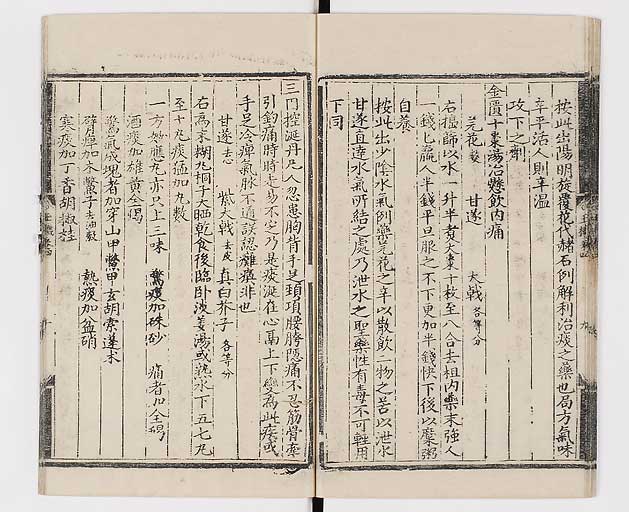 按此出陽明旋覆花代赭石例解利治痰之藥也局方氣味
辛平活人則辛温
攻下之劑
金匱十棗湯治懸飲內痛
芫花 甘遂 大戟各等分
右搗篩以水一升半煑大棗十枚至八合去柤內藥末強人
一錢匕羸人半錢平旦服之不下更加半錢快下後以糜粥
自養
按此出少陰水氣例藥芫花之辛以散飲二物之苦以泄水
甘遂直達水氣所結之處乃泄水之聖藥性有毒不可輕用
下同
三因控涎丹凡人忽患胸背手足頸項腰胯隱痛不忍筋骨牽
引釣痛時時走易不定乃是痰涎在心鬲上下變為此疾或
手足冷痺氣脉不通誤認癱瘓非也
甘遂去心 紫大戟去皮 真白芥子各等分
右為末糊丸桐子大晒乾食後臨卧淡姜湯或熟水下五七丸
至十丸痰猛加丸數
一方妙應丸亦只上三味 驚痰加硃砂 痛者加全蝎
酒痰加雄黃全蝎
驚氣成塊者加穿山甲鱉甲玄胡索蓬朮
臂痺加木鱉子去油
寒痰加丁香胡椒桂 熱痰加盆硝